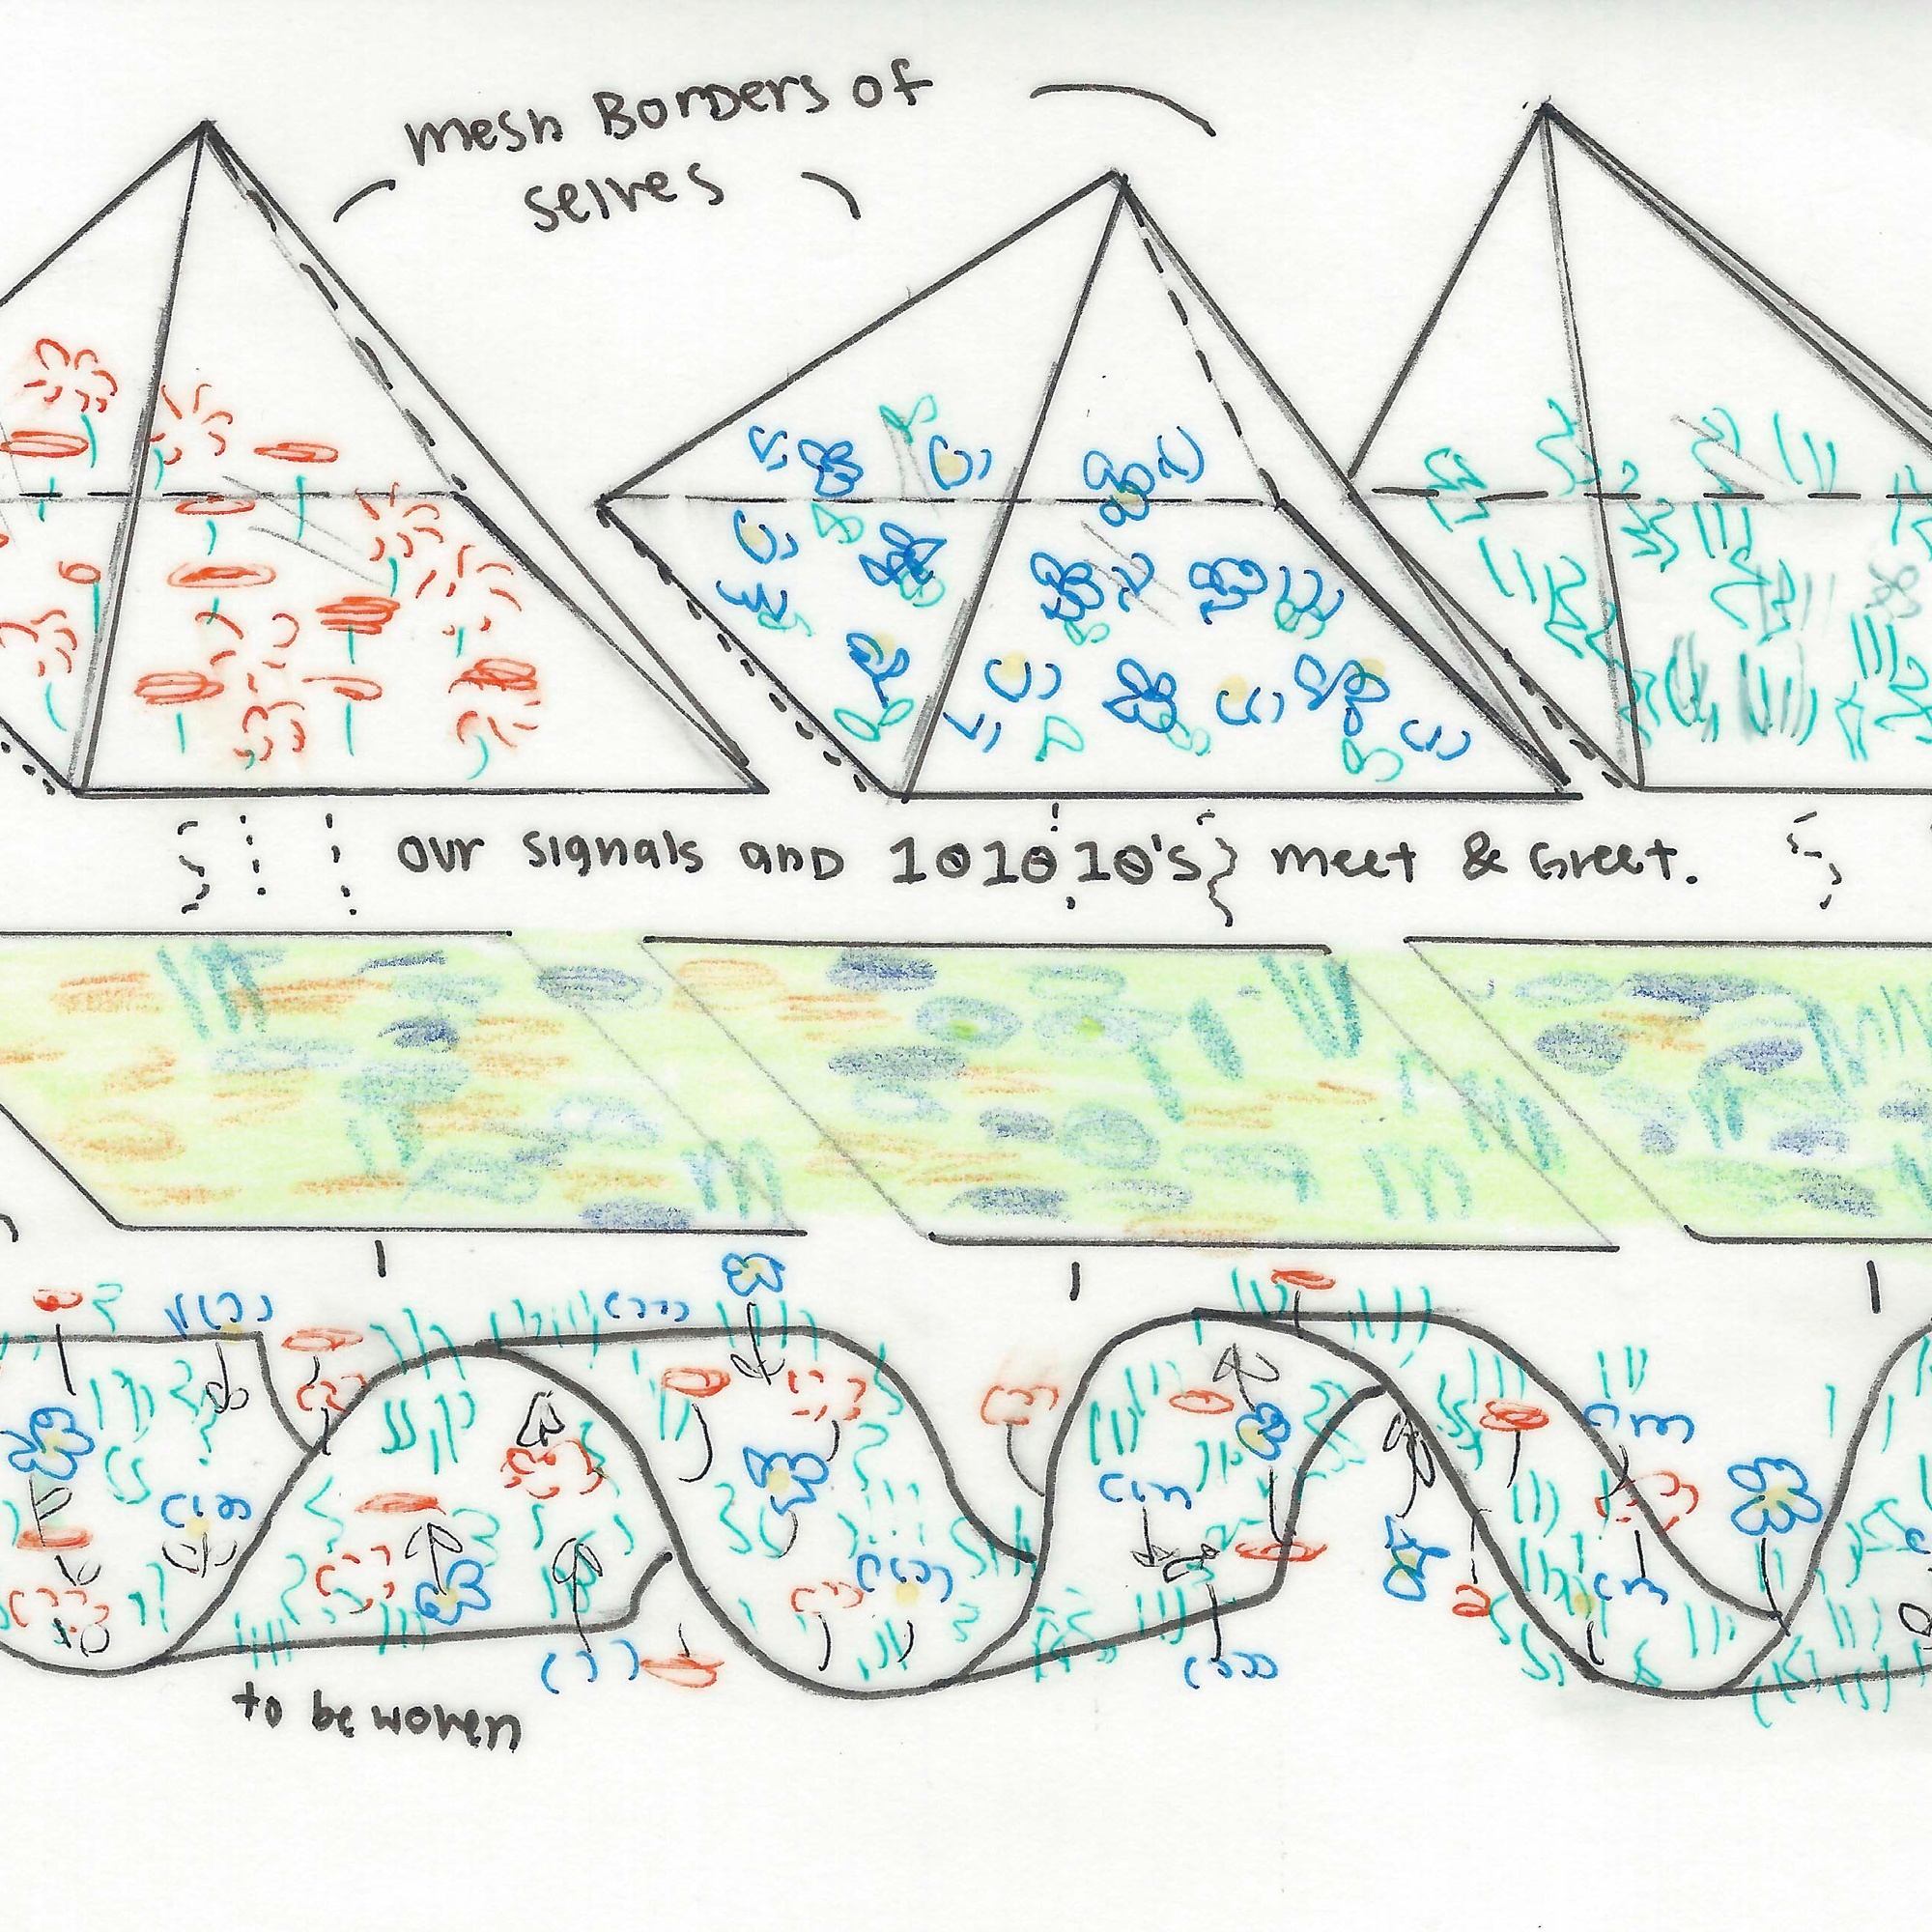 mesh Borders of
selves
our signals and 101010's} meet & Greet.
to be woven